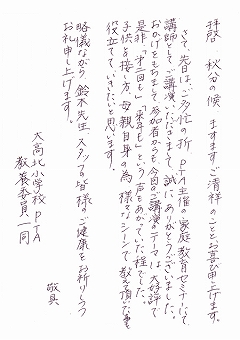 拝啓 秋分の候 ますますご清祥のこととお喜び申上げます。
さて、先日はご多忙の折、PTA主催の家庭教育セミナーにて
講師としてご講演いただきまして、誠にありがとうございました。
おかげをもちまして、参加者からも、今回のご講演のテーマは大好評で
是非「第二回も」「来年も」という声もあがっていた程でした。
子供と接し方、母親自身の為、様々なシーンで教えて頂いた事を
役立てていきたいと思います。
略儀ながら、鈴木先生、スタッフの皆様のご健康をお祈りしつつ
お礼申し上げます。
敬具
大高北小学校PTA
教養委員一同